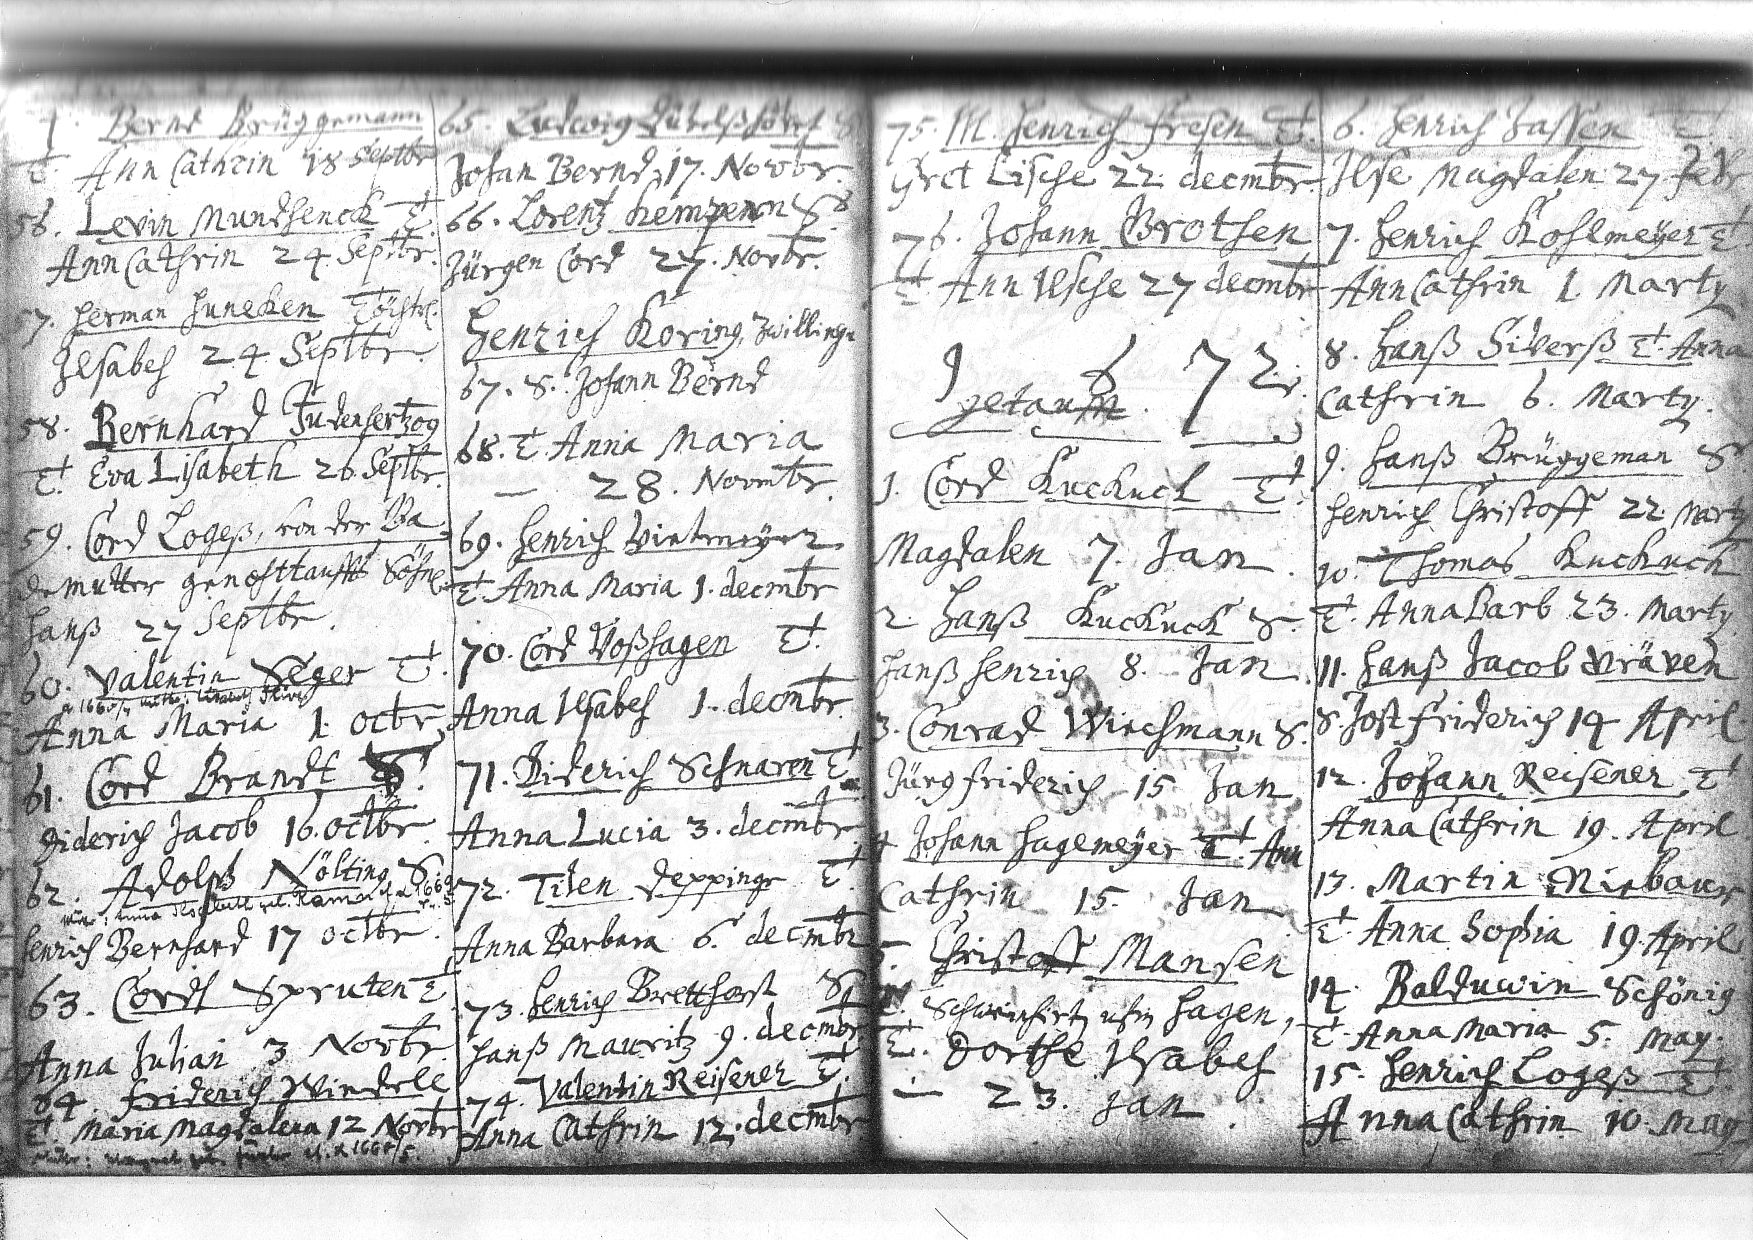 Bernd Brüggemann
T. Ann Cathrin 18 Septbr
56. Levin Mundhenck T.
Ann Cathrin 24. Septbr.
57. Herman Huneken Töchtl.
Ilsabeh 24 Septbr.
58. Bernhard Judenhertzog
T. Eva Lisabeth 26 Septbr.
59. Cord Logeß, von der
de mutter genohttaufft Söhnl.
Hanß 27 Septbr.
60. Valentin Seger T.
Anna Maria 1. octbr
61. Cord Brandt S.
Diderich Jacob 16. octbr
62. Adolph Nölting S.
Henrich Bernhard 17 octbr.
63. Cordt Spruten T.
Anna Julian 3 Novbr.
64 Friderich Windele
T. Maria Magdalena 12 Novbr
65. Ludwig S
Johan Bernd, 17. Novbr.
66. Lorentz Kempenn S.
Jürgen Cord 27. Novbr.
Henrich Koring, Zwillinge
67. S. Johann Bernd
68. T. Anna Maria
— 28. Novmbr.
69. Henrich Vietmeyer
T. Anna Maria 1. decmbr
70. Cord Voßhagen T.
Anna Ilsabeh 1. decmbr.
71. Diderich Schnaren T.
Anna Lucia 3. decmbr.
72. Tilen Deppinge T.
Anna Barbara 6. decmbr
73. Henrich Bretthorst S.
Hanß Mauritz 9. decmbr.
74. Valentin Reisener T.
Anna Cathrin 12. decmbr
75. M. Henrich Fresen T.
Gret Lische 22. decmbr.
76. Johann Grothen
T. Ann Ilsche 27 decmbr
1672.
getaufft.
1. Cord Kuckuck T.
Magdalen 7. Jan.
2. Hanß Kuckuck S.
Hanß Henrich 8. Jan.
3. Conrad Wiechmann S.
Jürg Friderich 15 Jan
4 Johann Hagemeyer T. Ann
Cathrin 15. Jan
5. Christoff Mansen
Hagen,
T. Dorthe Ilsabeh
— 23. Jan.
6. Henrich Jassen T.
Ilse Magdalen 27 Febr
7. Henrich Kohlmeyer T.
Ann Cathrin 1. Marty
8. Hanß Siverß T. Anna
Cathrin 6. Marty.
9. Hanß Brüggeman S.
Henrich Christoff 22. Marty
10. Thomas Kuckuck
T. Anna Barb 23. Marty.
11. Hanß Jacob Vräven
S. Jost Friderich 14 April.
12. Johann Reisener T.
Anna Cathrin 19. April
13. Martin Niebaur
T. Anna Sophia 19. April
14. Balduwin Schönig
T. Anna Maria 5. May.
15. Henrich Logeß T.
Anna Cathrin 10. May